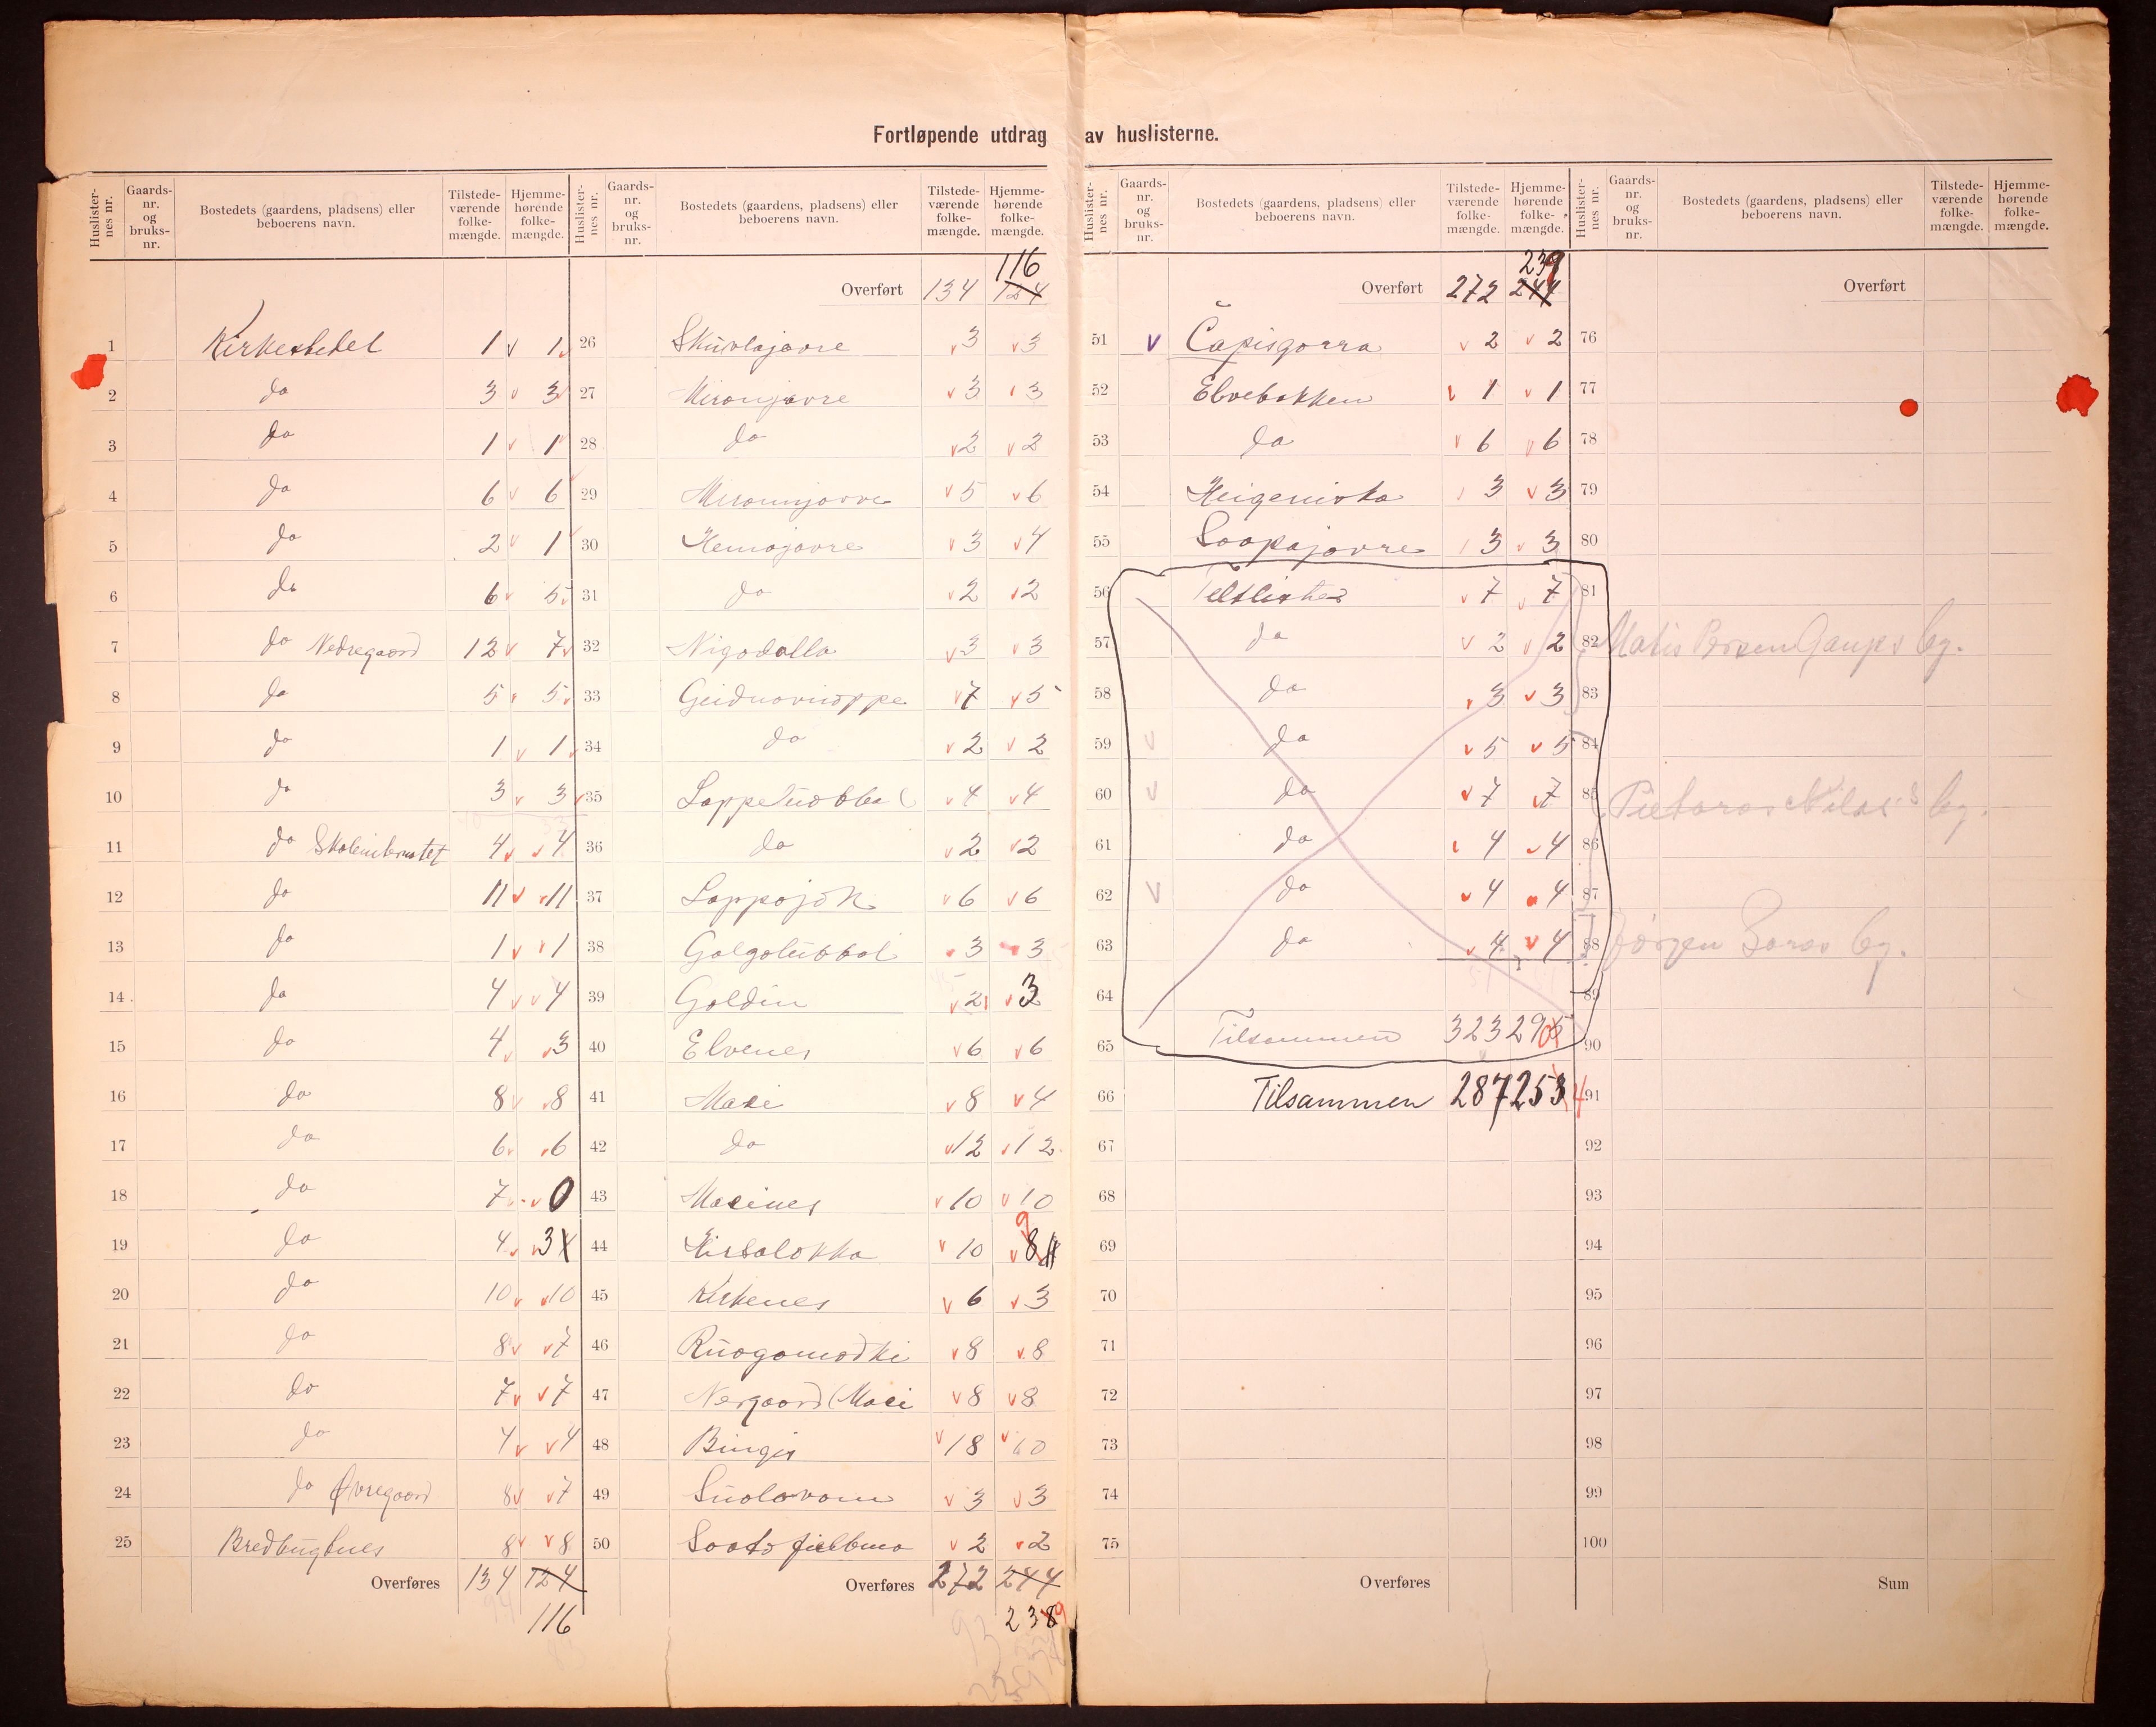 Fortløpende utdrag av huslisterne.
Huslisternes nr. Gaards-nr. og bruks-nr. Bostedets (gaardens, pladsens) eller beboerens navn. Tilstedeværende folkemængde. Hjemmehørende folkemængde.
1 Kirkestedet 1 1
2 do 3 3
3 do 1 1
4 do 6 6
5 do 2 1
6 do 6 5
7 do Nedregaard 12 7
8 do 5 5
9 do 1 1
10 do 3 3
11 do 4 4
12 do 11 11
13 do 1 1
14 do 4 4
15 do 4 3
16 do 8 8
17 do 6 6
18 do 7 0
19 do 4 3 4
20 do 10 10
21 do 8 7
22 do 7 7
23 do 4 4
24 do Øvregaard 8 7
25 Bredbugtnes 8 8
Overføres 134 124
116
Huslisternes nr. Gaards-nr. og bruks-nr. Bostedets (gaardens, pladsens) eller beboerens navn. Tilstedeværende folkemængde. Hjemmehørende folkemængde.
116
Overført 134 124
26 Skuvlajavre 3 3
27 Mironjavre 3 3
28 do 2 2
29 Mironnjavre 5 6
30 Hemojavre 3 4
31 do 2 2
32 Nigodalla 3 3
33 Geidnovuoppe 7 5
34 do 2 2
35 Lappeluobbal 4 4
36 do 2 2
37 Lappojok 6 6
38 Galgolubbal 3 3
39 Goldin 2 3
40 Elvenes 6 6
41 Masi 8 4
42 do 12 12
43 Masines 10 10
44 10 8 9
45 Kirkenes 6 3
46 Ruogomadki 8 8
47 Nergaard (Masi 8 8
48 Bingis 18 10
49 Suolovom 3 3
50 2 2
Overføres 272 244
238 9
Huslisternes nr. Gaards-nr. og bruks-nr. Bostedets (gaardens, pladsens) eller beboerens navn. Tilstedeværende folkemængde. Hjemmehørende folkemængde.
239
Overført 272 244
51 v Čapisgorra 2 2
52 Elvebakken 1 1
53 do 6 6
54 3 3
55 Soopajavre 3 3
56 Teltlister 7 7
57 do 2 2
58 do 3 3
59 v do 5 5
60 v do 7 7
61 do 4 4
62 v do 4 4
63 do 4 4
64
65 Tilsammen 323 290
66 Tilsammen 287 253 4
67
68
69
70
71
72
73
74
75
Overføres
Huslisternes nr. Gaards-nr. og bruks-nr. Bostedets (gaardens, pladsens) eller beboerens navn. Tilstedeværende folkemængde. Hjemmehørende folkemængde.
Overført
76
77
78
79
80
81
82 Matis Persen Gaups by.
83
84
85 Pietaras Nilas's by.
86
87
88 Jørgen Saras by.
89
90
91
92
93
94
95
96
97
98
99
100
Sum